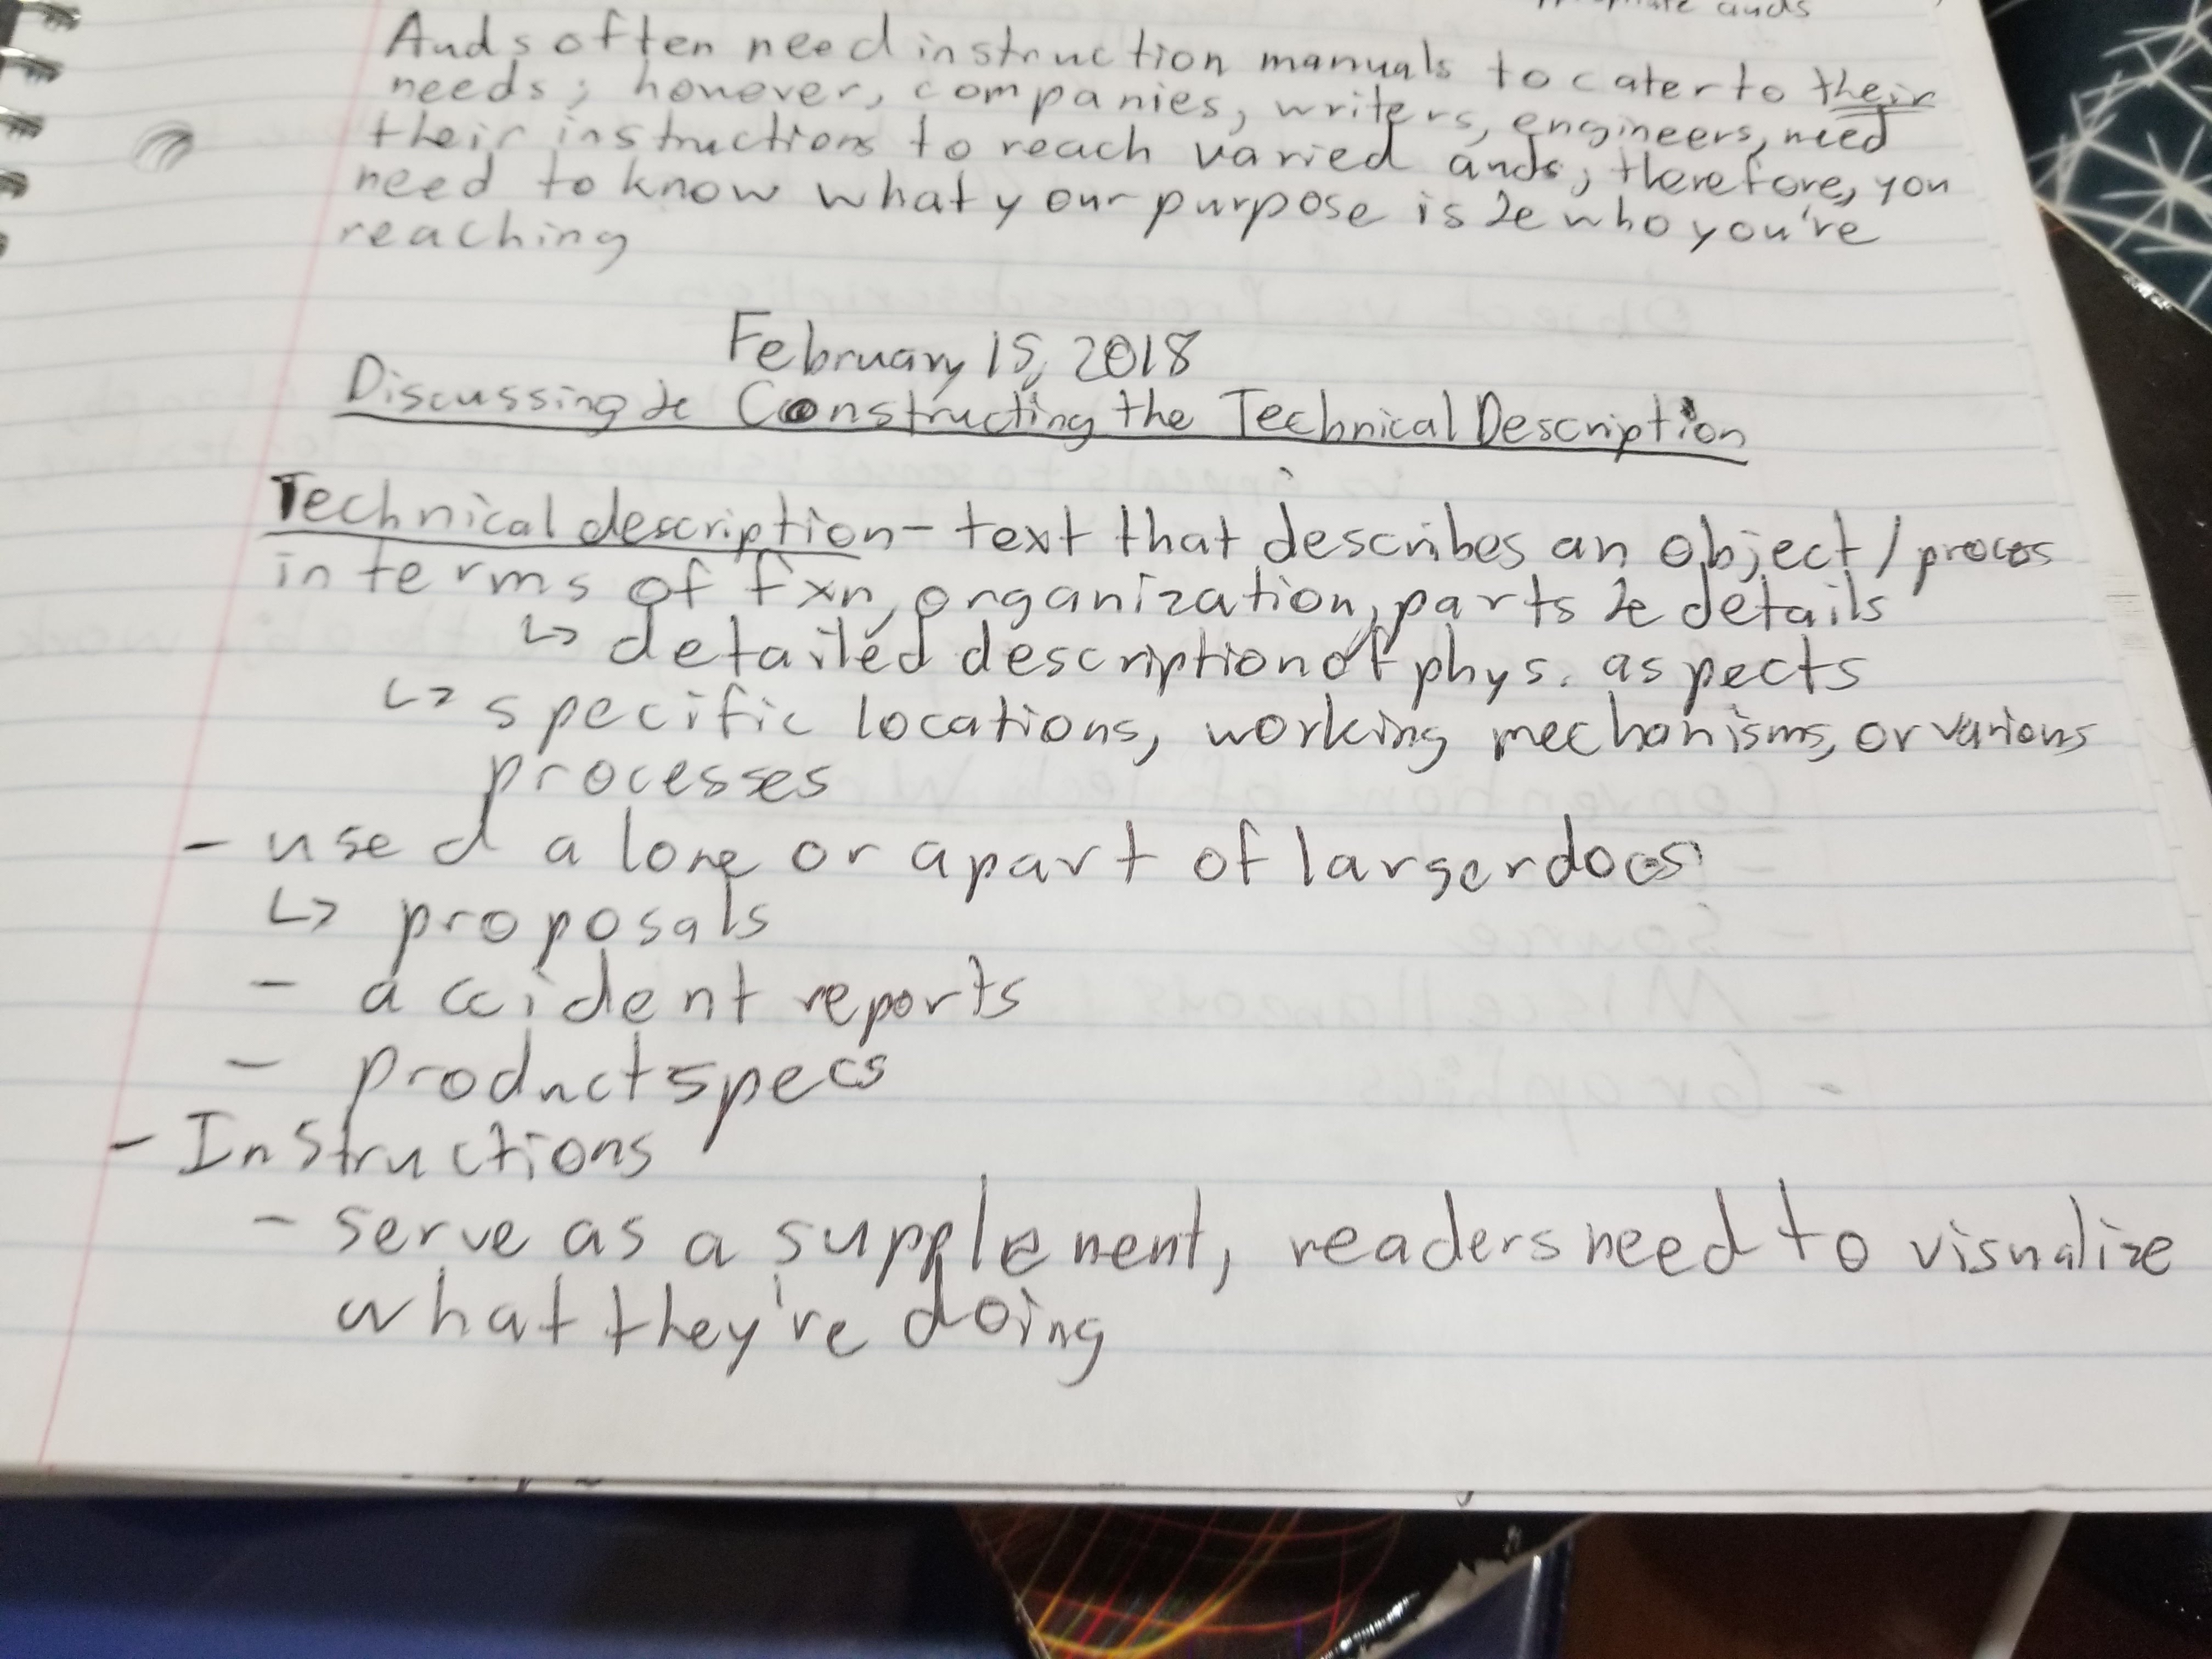 auds
Auds often need instruction manuals to cater to their
needs; however, companies, writers, engineers, need
their instructions to reach varied auds; therefore, you
need to know what your purpose is & who you're
reaching
February 15, 2018
Discussing & Constructing the Technical Description
Technical description - text that describes an object/process
in terms of fxn, organization, parts & details
↳ detailed description of phys. aspects
↳ specific locations, working mechanisms, or various
processes
- used alone or apart of larger docs
↳ proposals
- accident reports
- product specs
- Instructions
- serve as a supplement, readers need to visualize
what they're doing